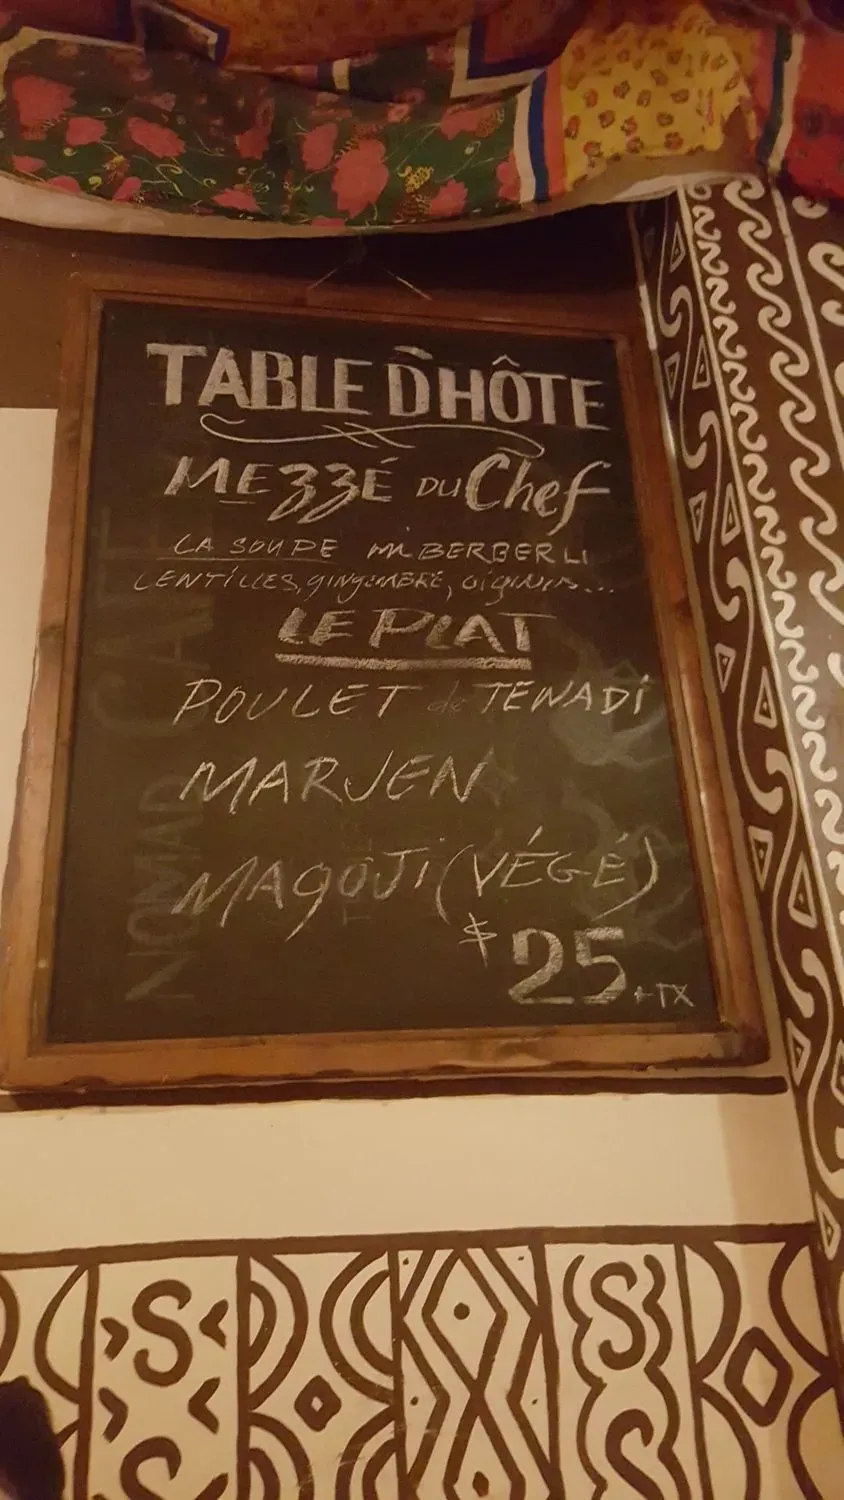 TABLE D'HÔTE
MEZZÉ DU Chef
LA SOUPE mi BERBERLI
LENTILLES, gingEMBRE, oignons...
LE PLAT
POULET de TENADI
MARJEN
MAgOJi (VÉGÉ)
$25.+TX
NOMAD CAFE